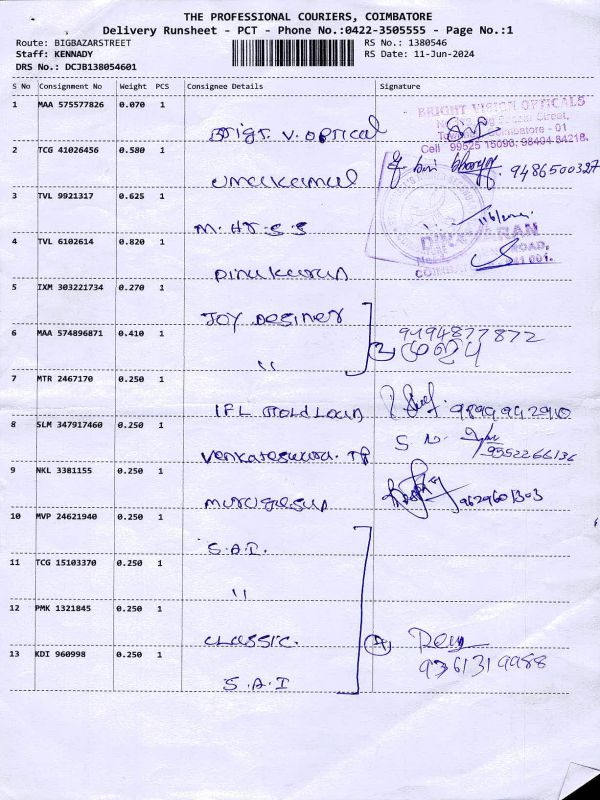 THE PROFESSIONAL COURIERS, COIMBATORE
Delivery Runsheet - PCT - Phone No.:0422-3505555 - Page No.:1
Route: BIGBAZARSTREET
RS No.: 1380546
Staff: KENNADY
RS Date: 11-Jun-2024
DRS No.: DCJB138054601
S No Consignment No Weight PCS Consignee Details Signature
1 MAA 575577826 0.070 1
BRIGHT VISION OPTICALS
Street,
Coimbatore - 01
Cell 99525 15096, 98404 84218.
Brigt. V. optical
2 TCG 41026456 0.580 1
9486500327
umakamal
3 TVL 9921317 0.625 1
M. Hr. S. S
4 TVL 6102614 0.820 1
DINAKARAN
ROAD,
Dinakaran
5 IXM 303221734 0.270 1
Joy Desiner
6 MAA 574896871 0.410 1
9494877872
"
2
7 MTR 2467170 0.250 1
IFL Gold Loan
9899942910
8 SLM 347917460 0.250 1
S
9352266136
Venkateswara. TP
9 NKL 3381155 0.250 1
9629601303
murugesan
10 MVP 24621940 0.250 1
S.A.I.
11 TCG 15103370 0.250 1
"
12 PMK 1321845 0.250 1
classic.
4
13 KDI 960998 0.250 1
9361319988
S.A.I